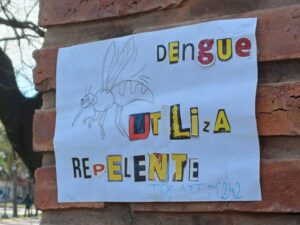 DENGUE
UTiLiZA
REPELENTE